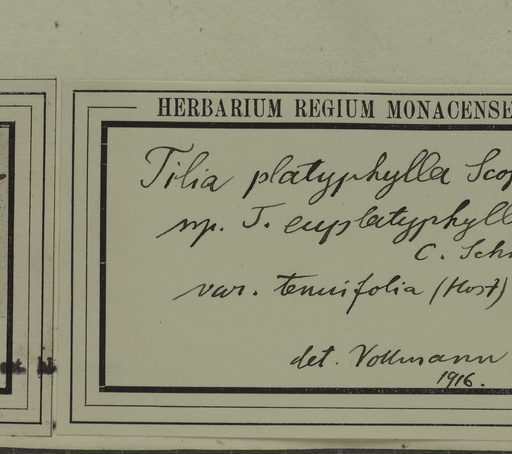 HERBARIUM REGIUM MONACENSE
Tilia platyphylla Scop
sp. T. euplatyphyll
C. Schn
var. tenuifolia (Host)
det. Vollmann
1916.